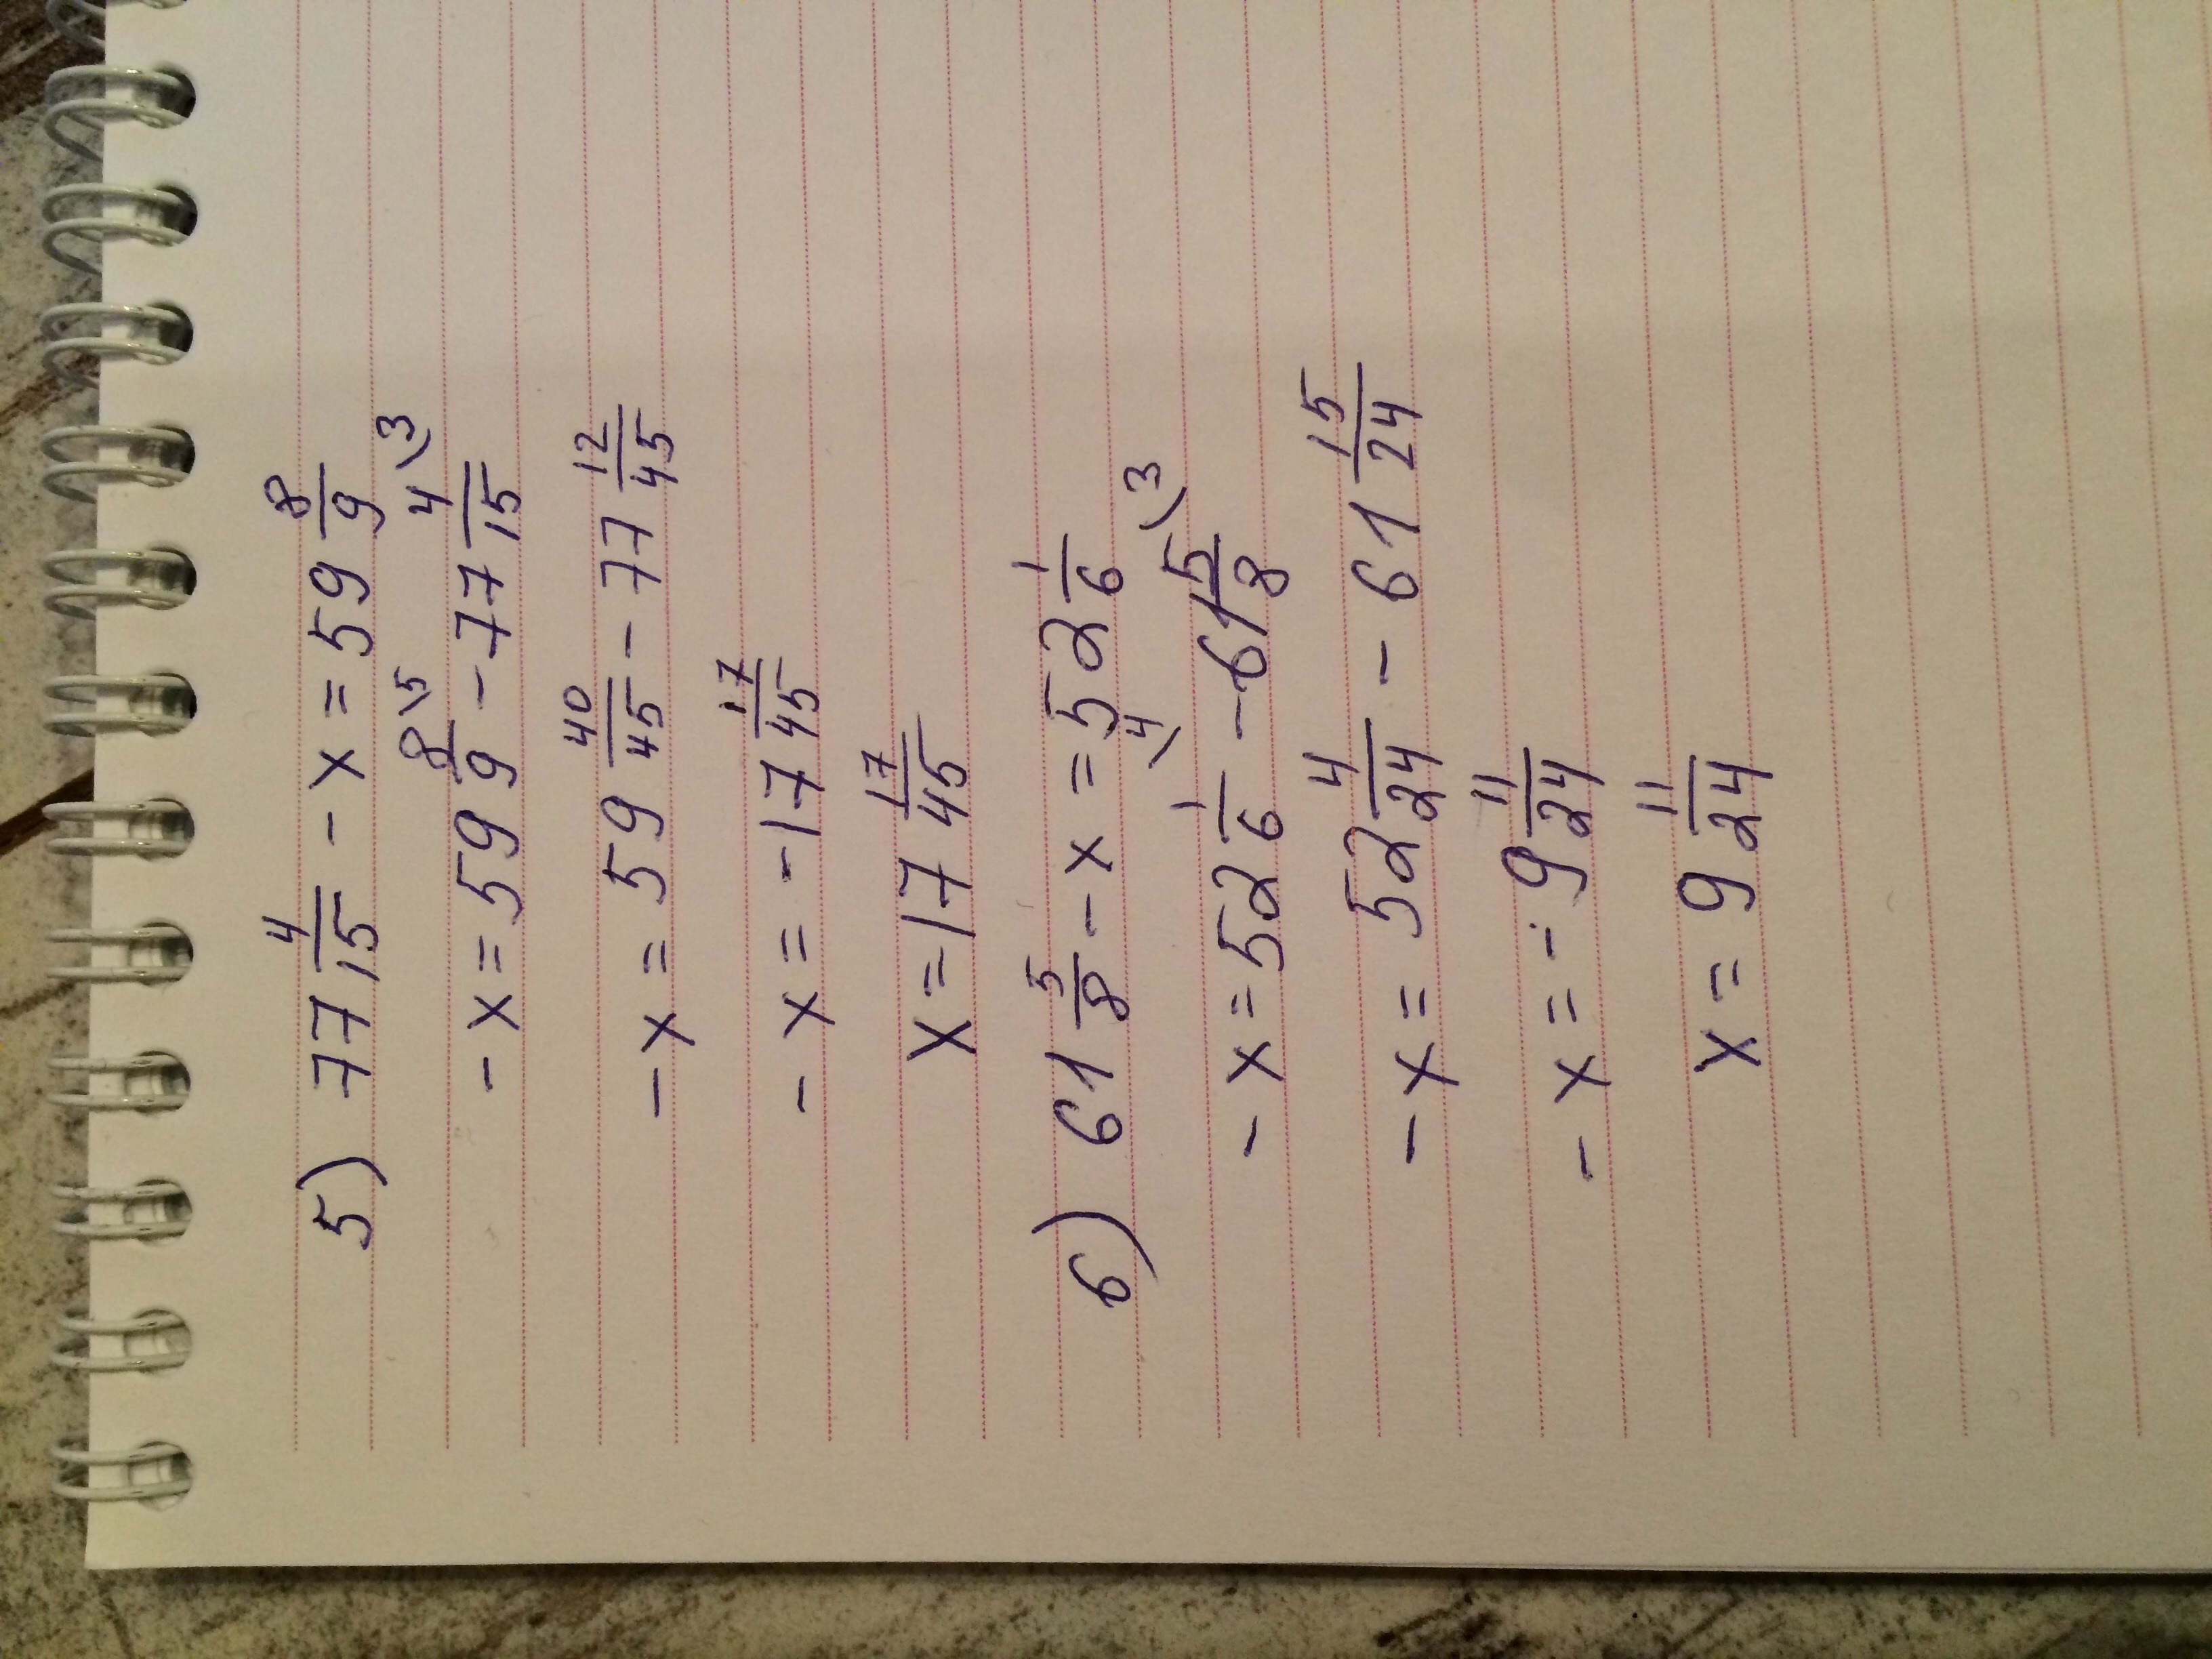 5) 77 4/15 - x = 59 8/9
-x = 59 8/9 \5 - 77 4/15 \3
-x = 59 40/45 - 77 12/45
-x = -17 17/45
x = 17 17/45
6) 61 5/8 - x = 52 1/6
-x = 52 1/6 \4 - 61 5/8 \3
-x = 52 4/24 - 61 15/24
-x = -9 11/24
x = 9 11/24